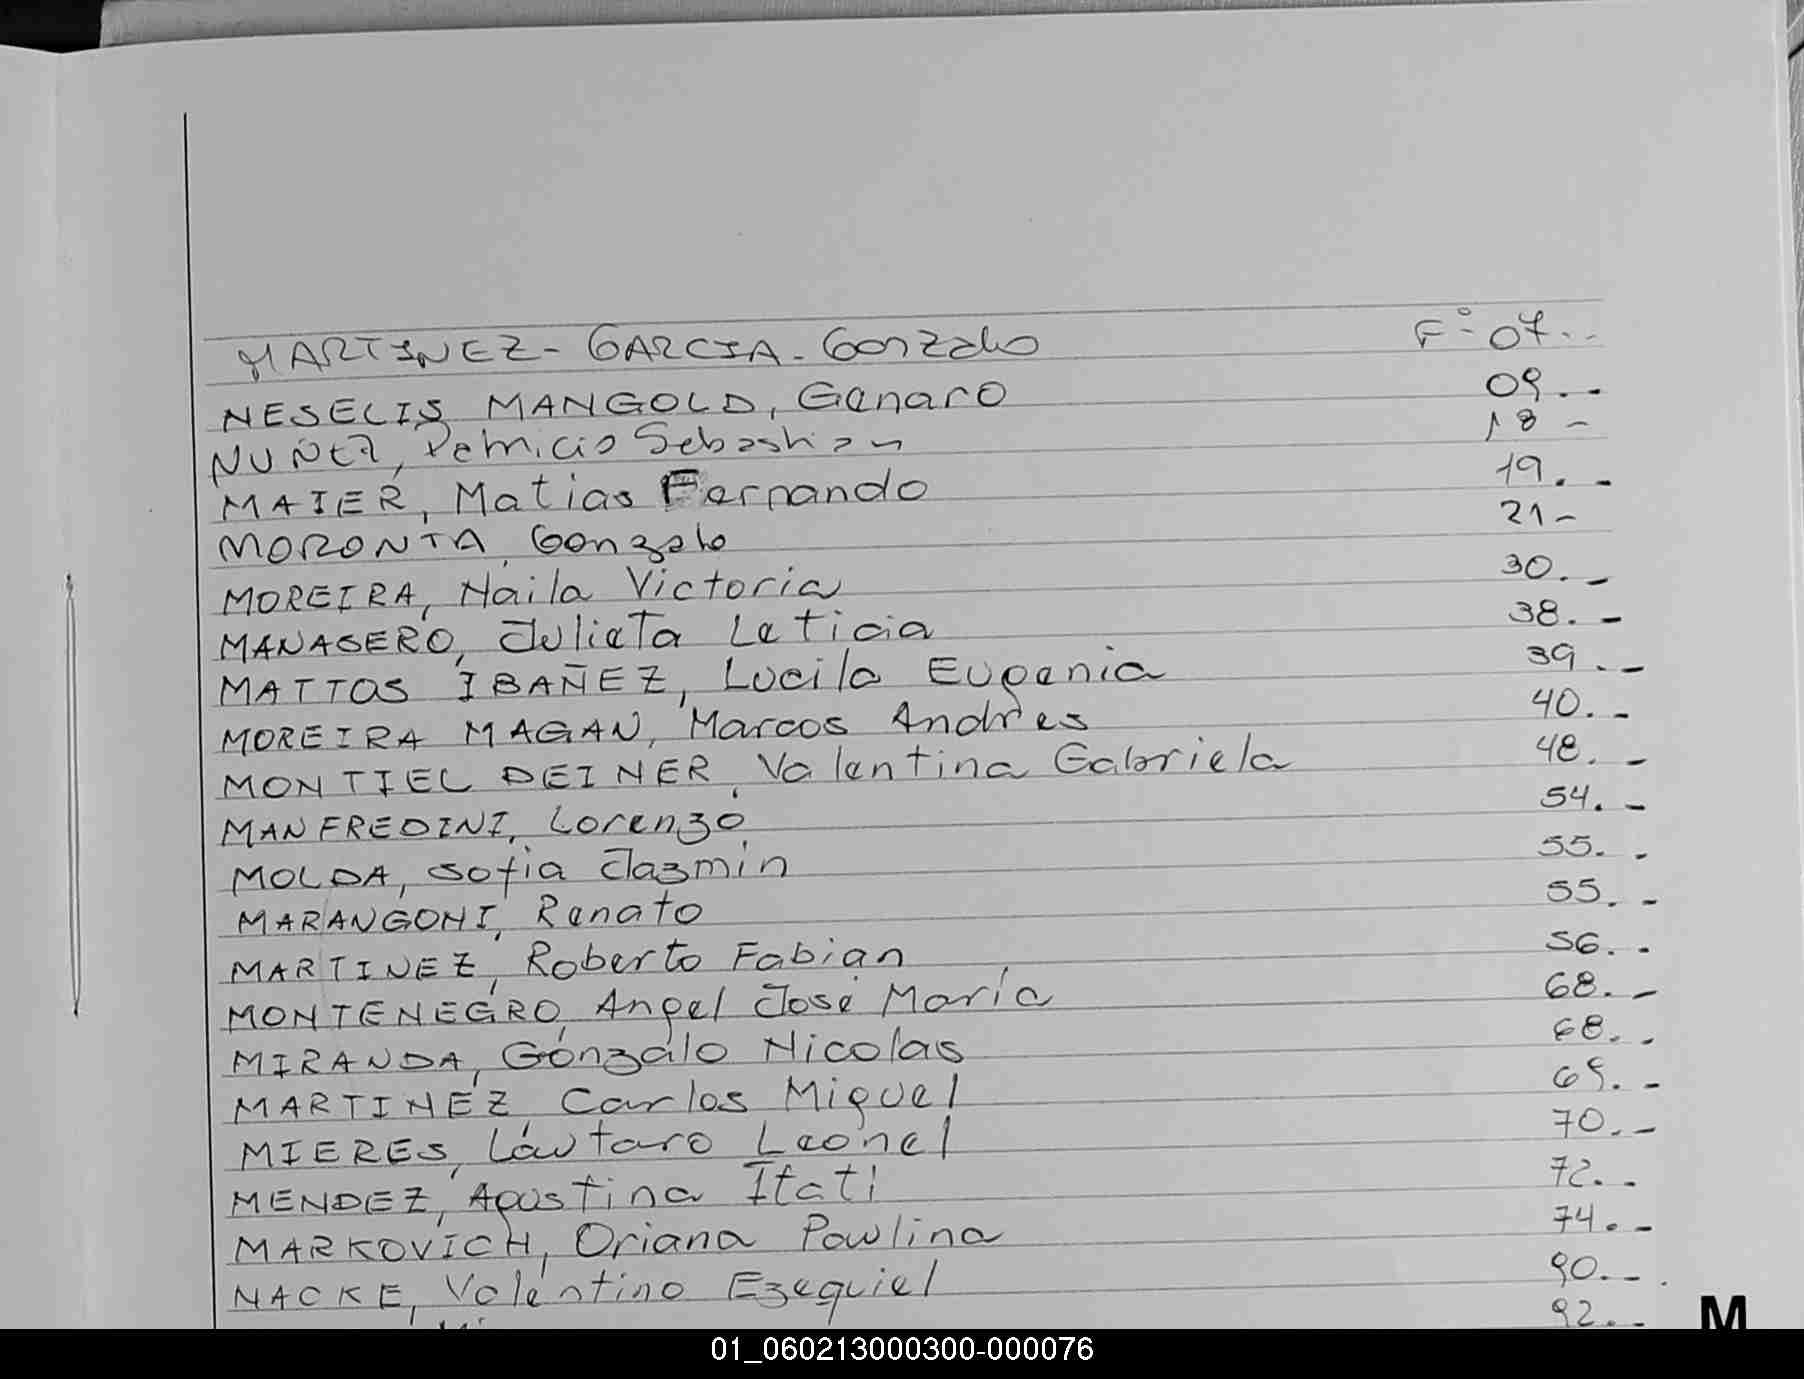 MARTINEZ - GARCIA - Gonzalo F° 07..
NESELIS MANGOLD, Genaro 09.-
NUÑEZ, Patricio Sebastian 18-
MAIER, Matias Fernando 19.-
MORONTA, Gonzalo 21-
MOREIRA, Naila Victoria 30.-
MANASERO, Julieta Leticia 38.-
MATTOS IBAÑEZ, Lucila Eugenia 39.-
MOREIRA MAGAN, Marcos Andres 40.-
MONTIEL DEINER, Valentina Gabriela 48.-
MANFREDINI, Lorenzo 54.-
MOLDA, Sofia Jazmin 55..
MARANGONI, Renato 55.-
MARTINEZ, Roberto Fabian 56..
MONTENEGRO, Angel José María 68.-
MIRANDA, Gonzalo Nicolas 68..
MARTINEZ, Carlos Miguel 69.-
MIERES, Lautaro Leonel 70.-
MENDEZ, Agustina Itati 72..
MARKOVICH, Oriana Paulina 74.-
NACKE, Valentino Ezequiel 90.-
92.-
M
01_060213000300-000076